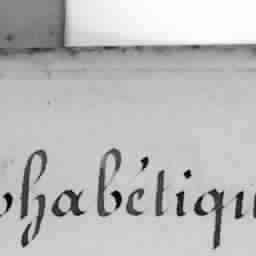 phabétiqu